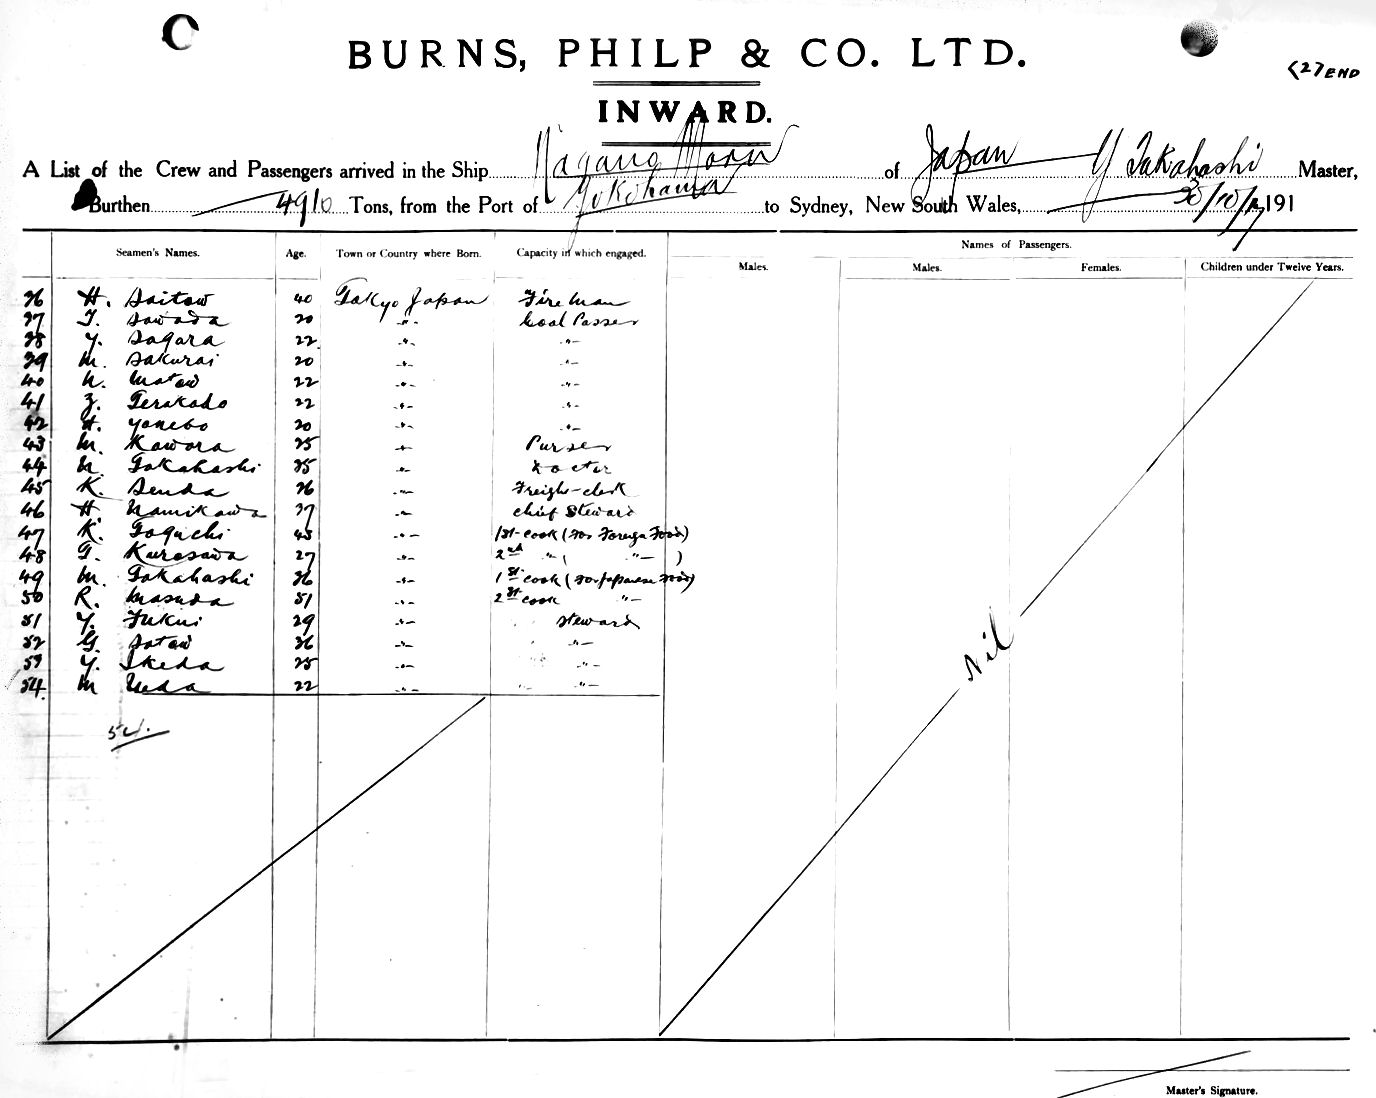 <2> END
BURNS, PHILP & CO. LTD.
INWARD.
A List of the Crew and Passengers arrived in the Ship Nagano Maru of Japan Y Takahashi Master,
Burthen 4910 Tons, from the Port of Yokohama to Sydney, New South Wales, 30/10/17 191
Seamen's Names. Age. Town or Country where Born. Capacity in which engaged. Names of Passengers.
Males. Males. Females. Children under Twelve Years.
36 H. Saitow 40 Tokyo Japan Fireman
37 T. Sawada 20 -"- Coal Passer
38 Y. Sagara 22 -"- -"-
39 M. Sakurai 20 -"- -"-
40 N. Matow 22 -"- -"-
41 Z. Terakado 22 -"- -"-
42 H. Yonebo 20 -"- -"-
43 M. Kawora 25 -"- Purser
44 N. Takahashi 35 -"- Doctor
45 K. Senda 26 -"- Freight-clerk
46 H Namikawa 37 -"- chief Steward
47 K. Taguchi 43 -"- 1st-cook (For Foreign Food)
48 T. Kurosawa 27 -"- 2nd -"- ( -"- )
49 M. Takahashi 36 -"- 1st cook (For Japanese Food)
50 R. Masuda 31 -"- 2st cook -"-
51 Y. Fukui 29 -"- steward
52 G. Satow 36 -"- -"-
53 Y. Ikeda 25 -"- -"-
54. M Ueda 22 -"- -"- -"-
Nil
54.
Master's Signature.